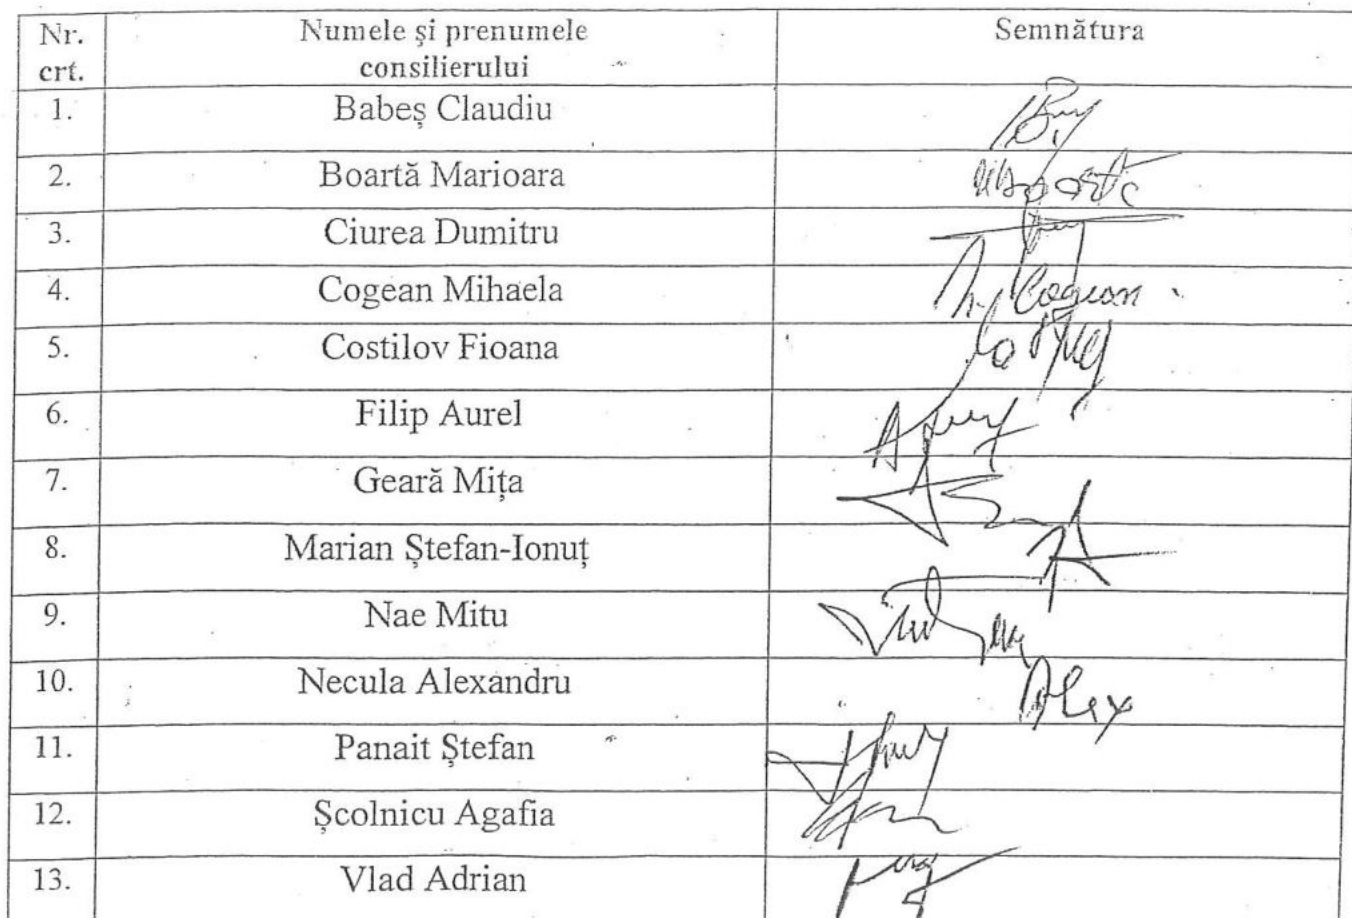 Nr. crt.
Numele și prenumele consilierului
Semnătura
1. Babeș Claudiu
2. Boartă Marioara
3. Ciurea Dumitru
4. Cogean Mihaela
Cogean
5. Costilov Fioana
6. Filip Aurel
7. Geară Mița
8. Marian Ștefan-Ionuț
9. Nae Mitu
10. Necula Alexandru
Alex
11. Panait Ștefan
12. Școlnicu Agafia
13. Vlad Adrian